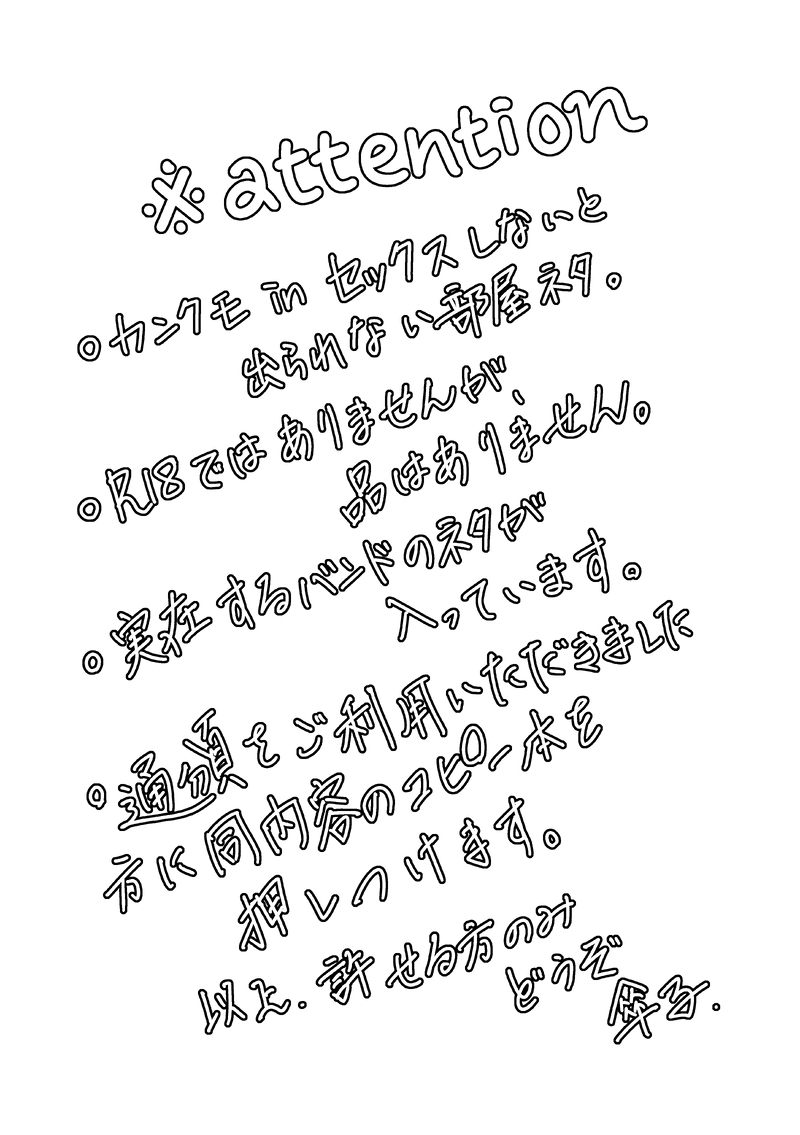 ※attention
○カンクモ in セックスしないと
出られない部屋ネタ。
○R18ではありませんが、
品はありません。
○実在するバンドのネタが
入っています。
○通頒をご利用いただきました
方に同内容のコピー本を
押しつけます。
以上.許せる方のみ
どうぞ